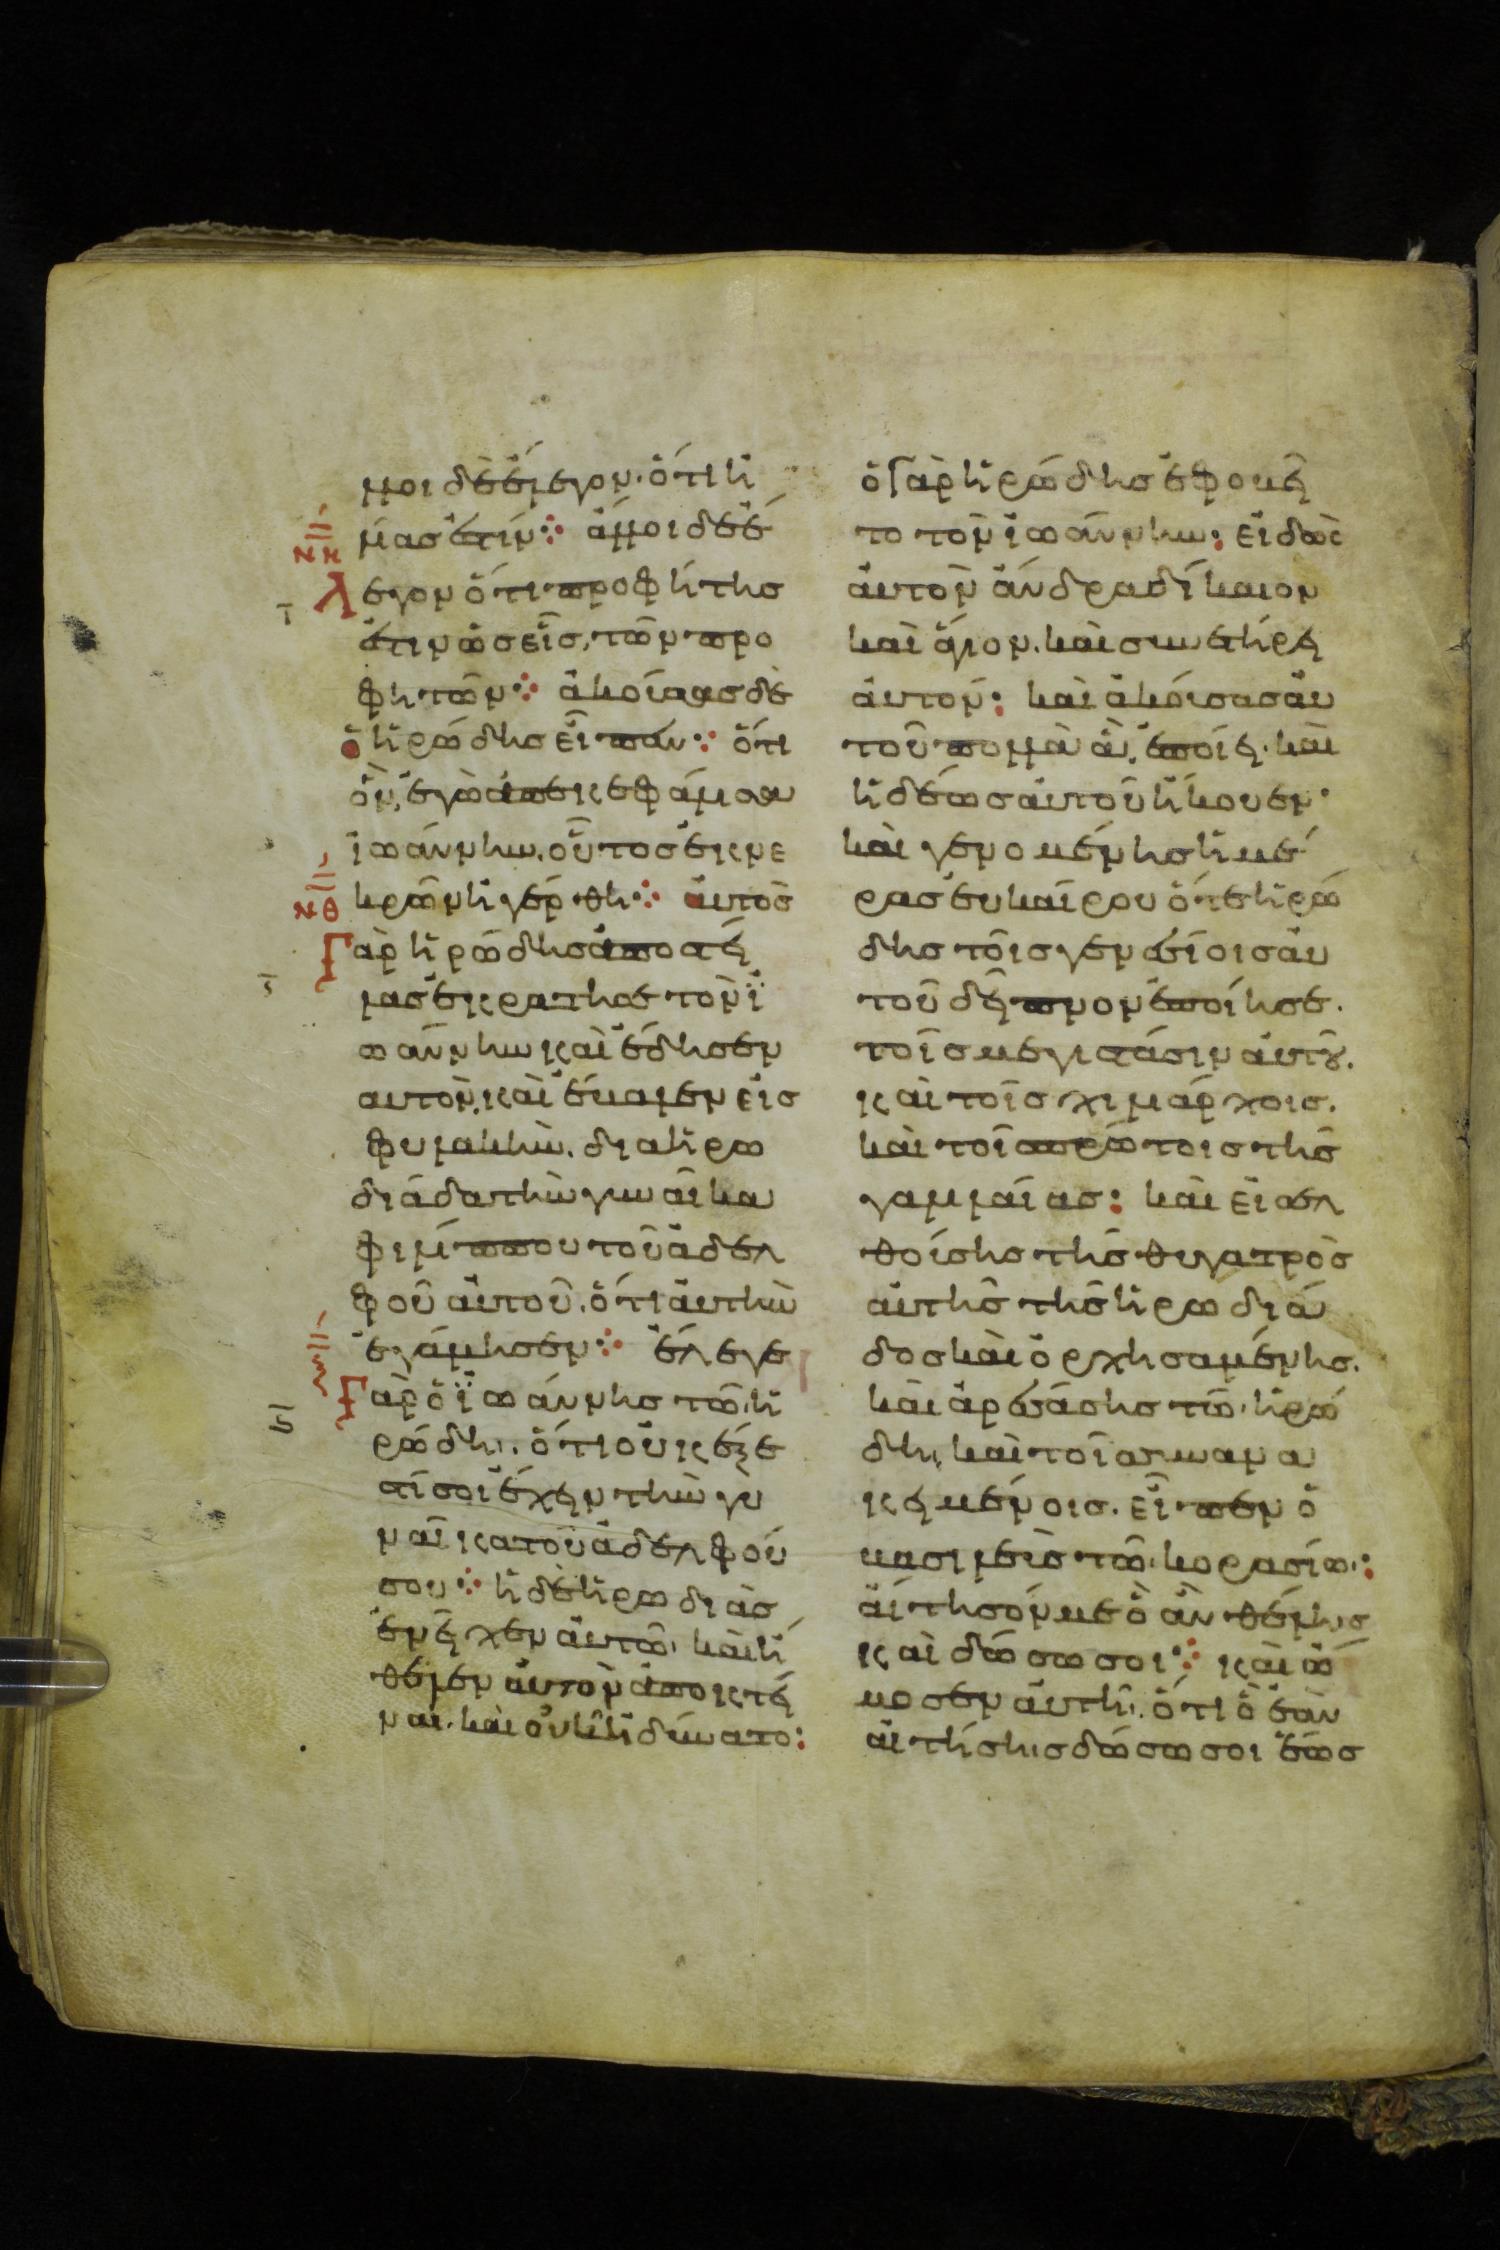 λλοι δὲ ἔλεγον· ὅτι ἠ
λίας ἐστίν⁘ ἄλλοι δὲ ἔ
νη
λεγον ὅτι προφήτης
ι
ἐστιν ὡς εἷς, τῶν προ
φητῶν⁘ ἀκούσας δὲ
ὁ ἡρώδης εἶπεν⁘ ὅτι
ὃν, ἐγὼ ἀπεκεφάλισα
ἰωάννην, οὗτος ἐκ νε
κρῶν ἠγέρθη⁘ αὐτὸς
νθ
γὰρ ἡρώδης ἀποστεί
λας ἐκράτησε τὸν ἰ
ωάννην καὶ ἔδησεν
αυτὸν, καὶ ἔβαλεν εἰς
φυλακὴν. δια ἡρω
διάδα τὴν γυναῖκα
φιλίππου τοῦ ἀδελ
φοῦ αὐτοῦ. ὅτι αὐτὴν
ἐγάμησεν⁘ ἔλεγε
ξ
γὰρ ὁ ἰωάννης τῶ ἡ
ρώδη. ὅτι οὐκ ἔξε
στί σοι ἔχειν τὴν γυ
ναῖκα τοῦ ἀδελφοῦ
σου⁘ ἡ δὲ ἡρωδιὰς
ἐνεῖχεν αὐτῶ, καὶ ἤ
θελεν αὐτὸν ἀποκτεῖ
ναι. καὶ οὐκ ἠδύνατο:
ὁ γὰρ ἡρώδης ἐφοβεῖ
το τὸν ἰωάννην: εἰδὼς
αὐτὸν ἄνδρα δίκαιον
καὶ ἅγιον. καὶ συνετήρει
αὐτόν: καὶ ἀκούσας αὐ
τοῦ πολλὰ ἃ, ἐποίει. καὶ
ἡδέως αὐτοῦ ἤκουεν·
καὶ γενομένης ἡμέ
ρας εὐκαίρου ὅτε ἡρώ
δης τοῖς γενεσίοις αὐ
τοῦ δεῖπνον ἐποίησε.
τοῖς μεγιστάσιν αὐτοῦ.
καὶ τοῖς χιλιάρχοις.
καὶ τοῖς πρώτοις τῆς
γαλιλαίας: καὶ εἰσελ
θούσης τῆς θυγατρὸς
αὐτῆς τῆς ἡρωδιά
δος καὶ ὀρχησαμένης.
καὶ ἀρεσάσης τῶ ἡρώ
δη, καὶ τοῖς συνανα
κειμένοις. εἶπεν ὁ
βασιλεὺς τῶ κορασίω:
αἴτησόν με ὃ ἂν θέλης
καὶ δώσω σοι⁘ καὶ ὤ
μοσεν αὐτῆ. ὅτι ὃ ἐὰν
αἰτήσης δώσω σοι ἕως